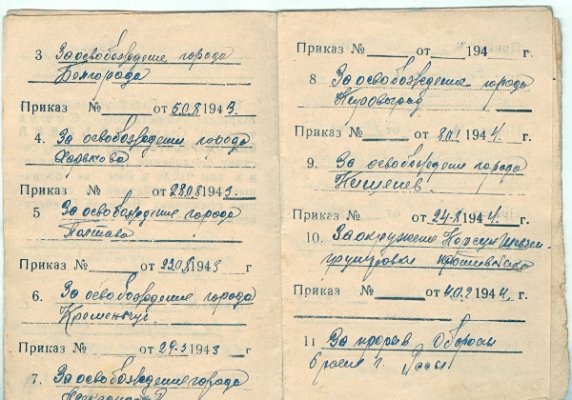 3 За освобождение города
Белгорода
Приказ № от 5.08 1943.
4. За освобождение города
Харькова
Приказ № от 28.08 1943.
5 За освобождение города
Полтава
Приказ № от 23.08 1943 г
6. За освобождение города
Кременчуг.
Приказ № от 29.9 1943 г
7. За освобождение города
Приказ № от 194 г.
8 За освобождение города
Кировоград
Приказ № от 8.01 194 4. г.
9. За освобождение города
Кишенев.
Приказ № от 24-8 194 4. г.
10. За окружение Корсун Шевчен-
групировки противника
Приказ № от 194 4. г.
11 За прорыв Обороны
г. Яссы